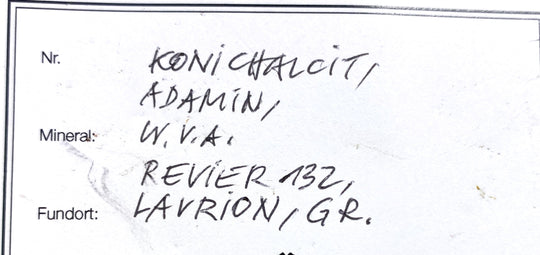 Nr. KONICHALCIT,
ADAMIN,
Mineral: U.V.A.
REVIER 132,
Fundort: LAVRION, GR.